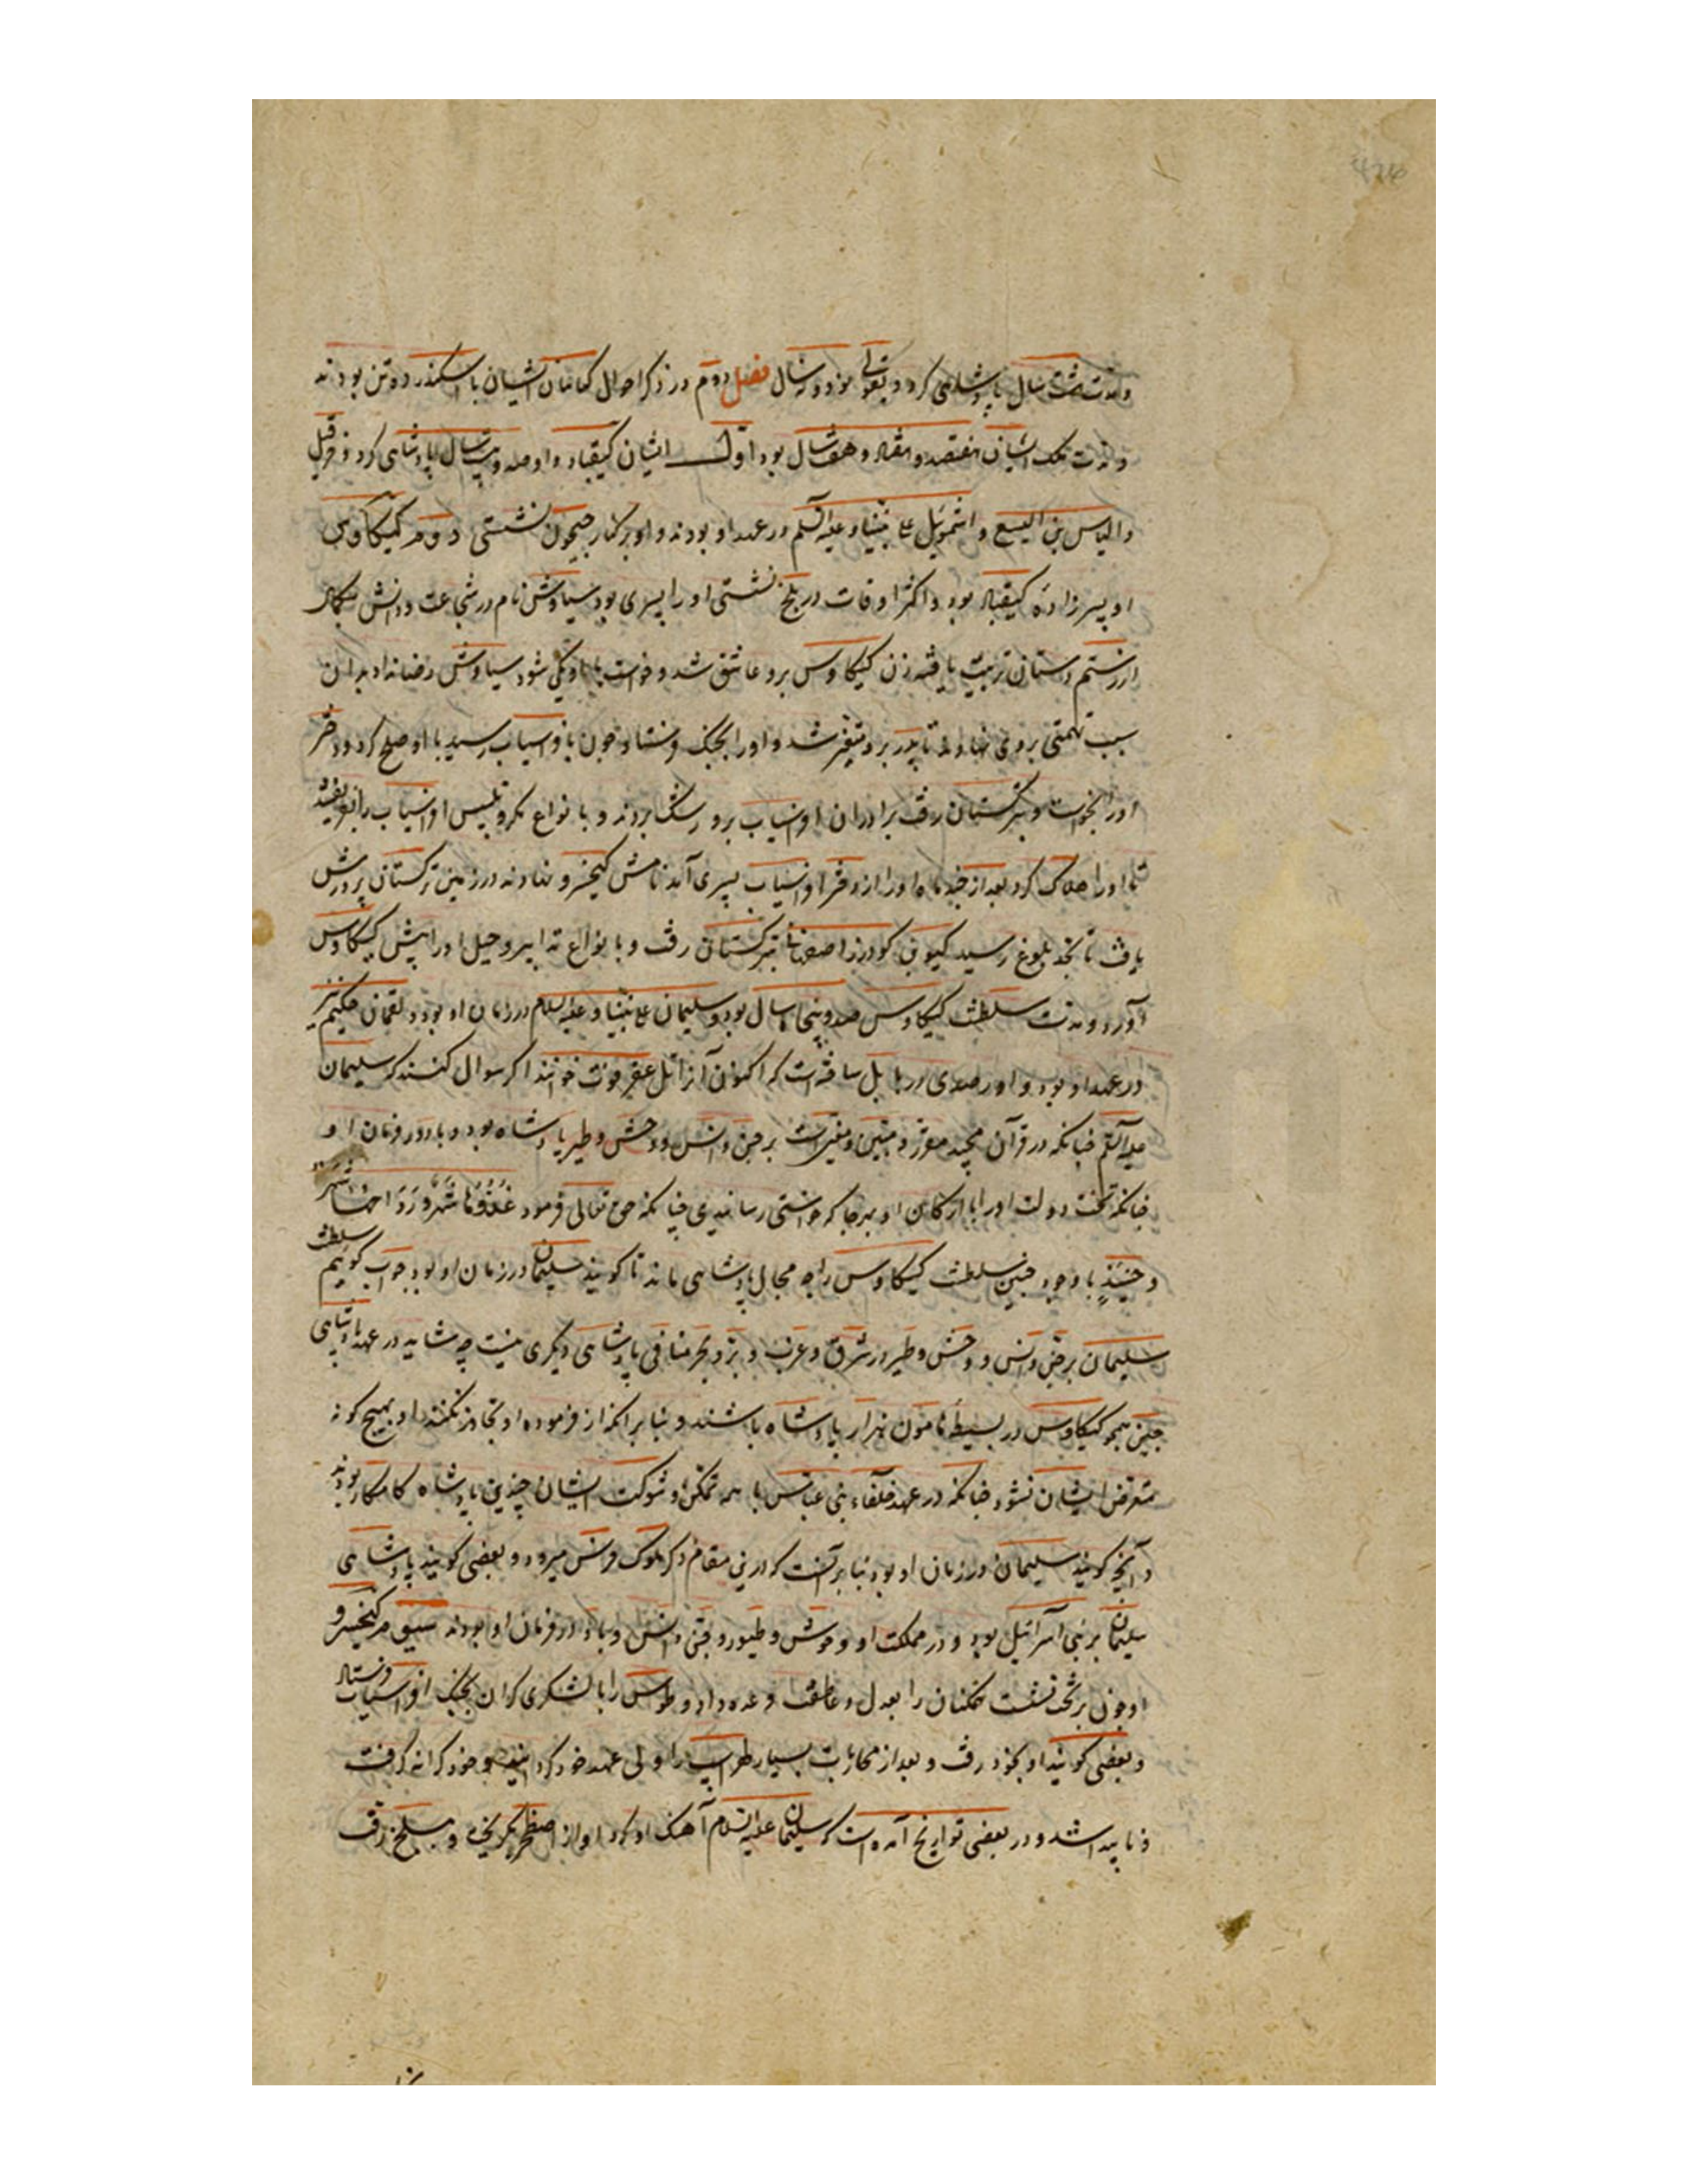 و مدت شصت سال پادشاهی کرد و بقولی نود و نه سال فصل دوم در ذکر احوال کیانیان ایشیان با اسکندر ده تن بودند
و مدت ملک ایشان هفتصد و هفتاد و هفت سال بود اول ایشان کیقباد و او صد و بیست سال پادشاهی کرد و خرقیل
و الیاس بن الیسع و اشمویل علی نبینا و علیه السلم در عهد او بودند و او بر کنار جیحون نشستی دوم کیکاوس
او پسرزاده کیقباد بود و اکثر اوقات در بلخ نشستی او را پسری بود سیاوش نام در شجاعت و دانش یکانه
از رستم دستان تربیت یافته زن کیکاوس برو عاشق شد و خواست با او یکی شود سیاوش رضا نداد بدان
سبب تهمتی بروی نهادند تا پدر برو متغیر شد و او را بجنک فرستاد و چون بافراسیاب رسید با او صلح کرد و دختر
او را بخواست و بترکستان رفت برادران افراسیاب برو رشک بردند و بانواع مکر و تلبیس افراسیاب را بفریفتند
تا او را هلاک کرد بعد از چند ماه او را از دختر افراسیاب پسری آمد نامش کیخسرو نهادند در زمین ترکستان پرورش
یافت تا بحد بلوغ رسید کیو بن کودرز اصفهانی بترکستان رفت و بانواع تدابیر و حیل او را پیش کیکاوس
آورد و مدت سلطنت کیکاوس صد و پنجاه سال بود و سلیمان علی نبینا و علیه السلام در زمان او بود و لقمان حکیم نیز
در عهد او بود و او رصدی در بابل ساخته است که اکنون آنرا تل عقرقوف خوانند اکر سوال کنند که سلیمان
علیه السلم چنانکه در قرآن مجید مقرر و مبین و معین است بر جن و انس و وحش و طیر پادشاه بود و باد در فرمان او
چنانکه تخت دولت او را با ارکان او بهر جا که خواستی رسانیدی چنانکه حق تعالی فرمود غدوها شهر و رواحها شهر
و حینئذ با وجود چنین سلطنت کیکاوس را چه مجال پادشاهی ماند تا کویند سلیمان در زمان او بود جواب کوئیم سلطنت
سلیمان بر جن و انس و وحش و طیر در شرق و غرب و بر و بحر منافی پادشاهی دیکری نیست چه شاید در عهد پادشاهی
چنین همچو کیکاوس در بسیط هامون هزار پادشاه باشند و بنا برانکه از فرموده او تجاوز نکنند او بهیچ کونه
متعرض ایشان نشود چنانکه در عهد خلفاء بنی عباس با همه تمکن و شوکت ایشان چندین پادشاه کامکار بودند
و آنچ کویند سلیمان در زمان او بود بنا بر آنست که درین مقام ذکر ملوک فرس میرود و بعضی کویند پادشاهی
سلیمان بر بنی اسرائیل بود و در مملکت او و وحوش و طیور و جن و انس و باد در فرمان او بودند سیوم کیخسرو
او چون بر تخت نشست همکنان را بعدل و عاطفت وعده داد و طوس را با لشکری کران بجنک افراسیاب فرستاد
و بعضی کویند او بخود رفت و بعد از محاربات بسیار لهراسب را ولی عهد خود کردانید و خود کرانه کرفت
و ناپیدا شد و در بعضی تواریخ آمده است که سلیمان علیه السلام آهنک او کرد او از اصطخر بکریخت و ببلخ رفت